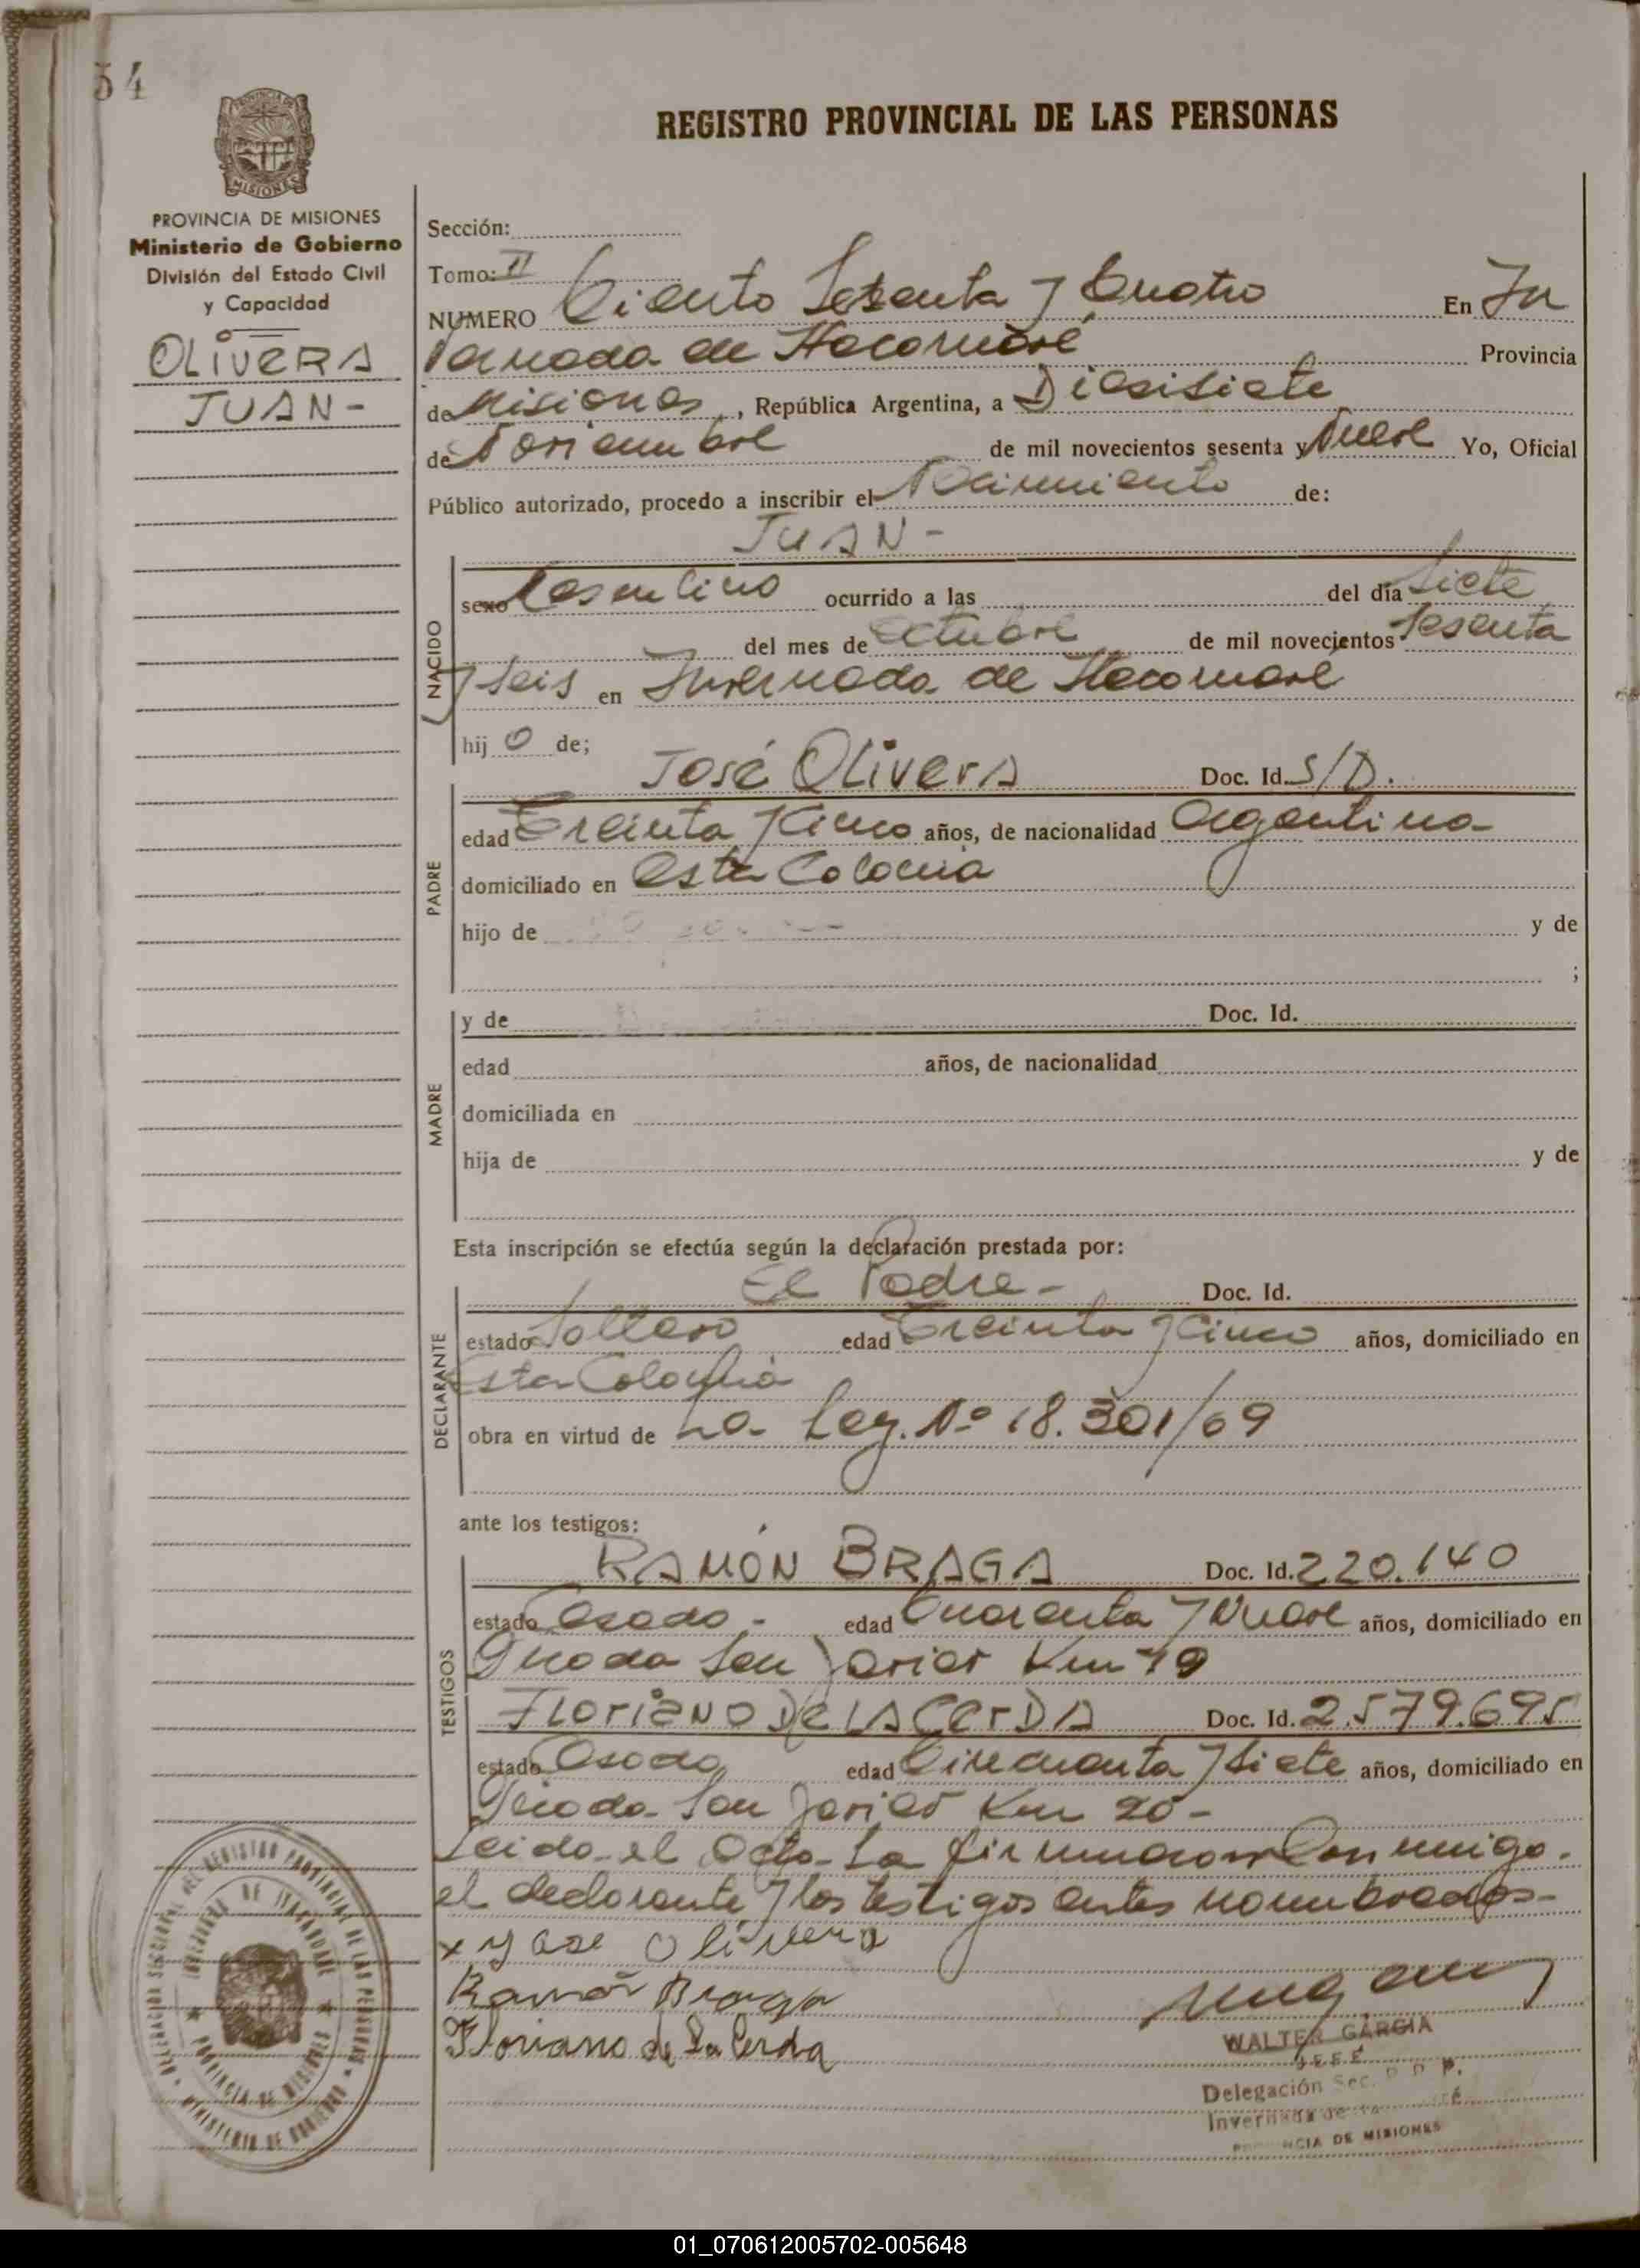 54
REGISTRO PROVINCIAL DE LAS PERSONAS
MISIONES
PROVINCIA DE MISIONES
Ministerio de Gobierno
División del Estado Civil
y Capacidad
OLIVERA
JUAN-
Sección:
Tomo: II
NUMERO Ciento Sesenta y Cuatro En In
vernada de Itacaruaré Provincia
de Misiones, República Argentina, a Diesisiete
de Noviembre de mil novecientos sesenta y Nueve Yo, Oficial
Público autorizado, procedo a inscribir el Nacimiento de:
JUAN-
NACIDO
sexo Masculino ocurrido a las del día Siete
del mes de Octubre de mil novecientos Sesenta
y Seis en Invernada de Itacaruaré
hij o de;
José OLiverA Doc. Id. S/D.
PADRE
edad Treinta y Cinco años, de nacionalidad Argentina
domiciliado en esta Colonia
hijo de y de
;
MADRE
y de Doc. Id.
edad años, de nacionalidad
domiciliada en
hija de y de
Esta inscripción se efectúa según la declaración prestada por:
El Padre- Doc. Id.
DECLARANTE
estado Soltero edad Treinta y Cinco años, domiciliado en
Esta Colonia
obra en virtud de La Ley. Nº 18.301/69
ante los testigos:
RAMÓN BRAGA Doc. Id. 220.140
TESTIGOS
estado Casado- edad Cuarenta y Nueve años, domiciliado en
Picada San Javier Km 19
FLoriANO De LA CerDA Doc. Id. 2.579.695
estado Casado edad Cincuenta y Siete años, domiciliado en
Picada San Javier Km 20-
Leida el Acta La firmaron Conmigo.
el declarante y los testigos antes nombrados-
x Jose Olivera
Ramón Braga
Floriano de La Cerda
WALTER GARCIA
JEFE
Delegación Sec. R. P. P.
Invernada de
PROVINCIA DE MISIONES
01_070612005702-005648